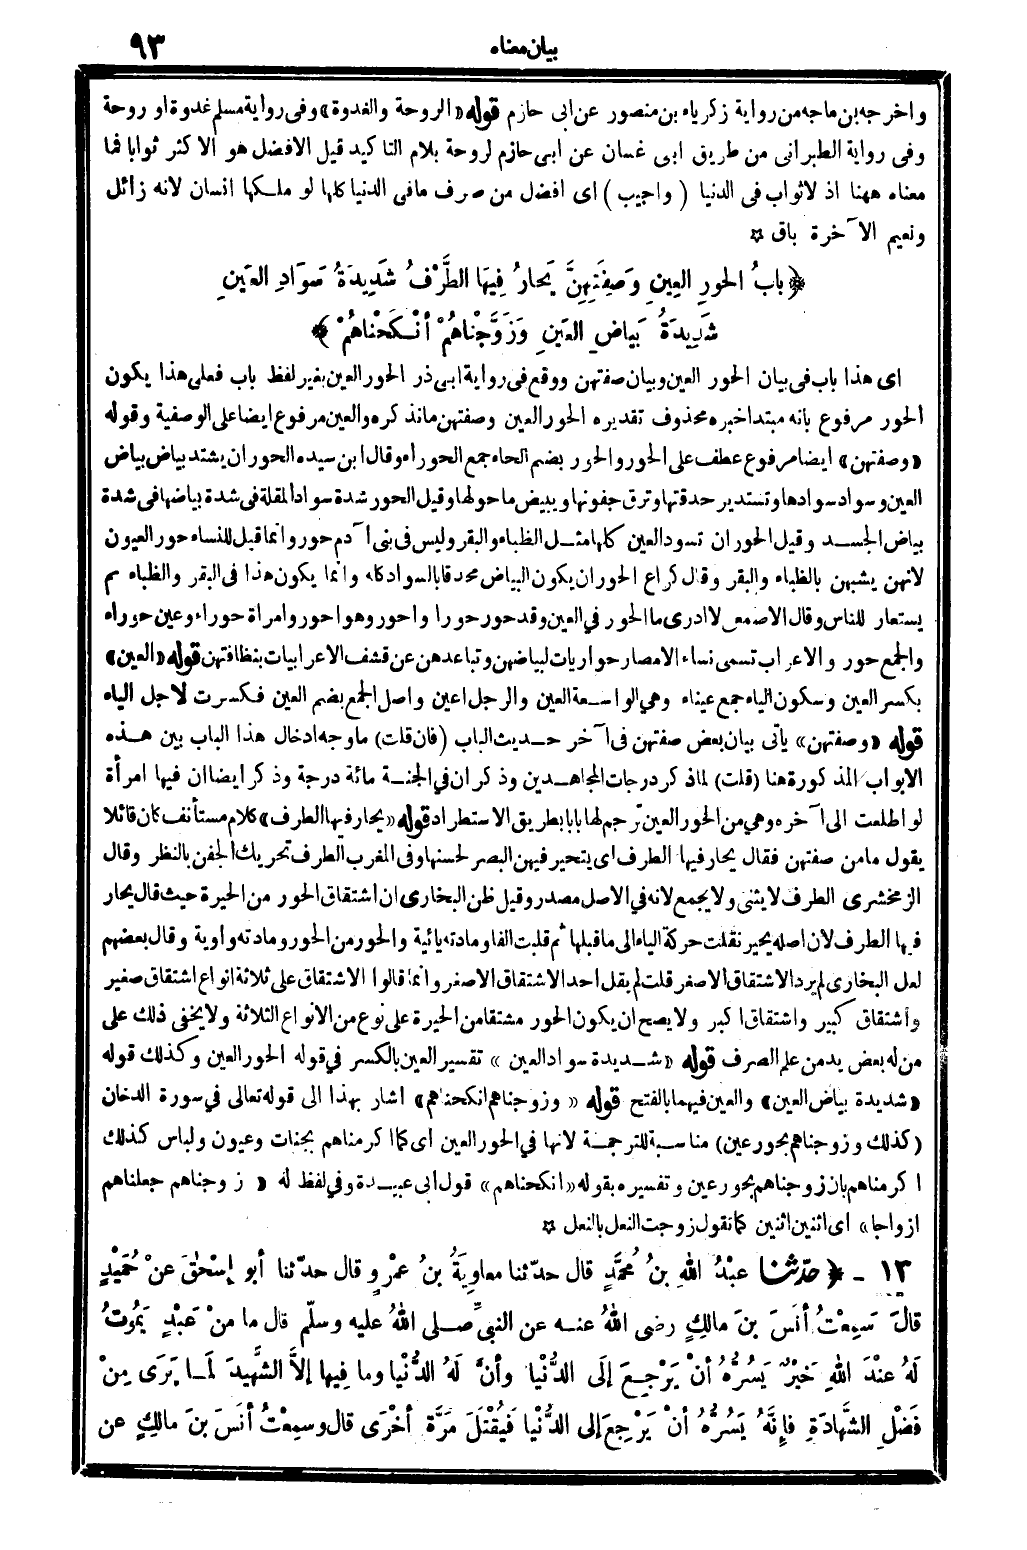 بيان معناه ٩٣
واخرجه بن ماجه من رواية زكرياء بن منصور عن ابى حازم قوله «الروحة والغدوة» وفى رواية مسلم غدوة او روحة
وفى رواية الطبرانى من طريق ابى غسان عن ابى حازم لروحة بلام التا كيد قيل الافضل هو الاكثر ثوابا فما
معناه ههنا اذ لاثواب فى الدنيا ( واجيب ) اى افضل من صرف مافى الدنيا كلها لو ملكها انسان لانه زائل
ونعيم الآخرة باق ☆
﴿ بابُ الحورِ العِينِ وَصِفَتِهِنَّ يَحارُ فِيهَا الطَّرْفُ شَدِيدَةُ سَوَادِ العَينِ
شَدِيدَةُ بَيَاضِ العَينِ وَزَوَّجْناهُمْ أنْكَحْناهُمْ ﴾
اى هذا باب فى بيان الحور العين وبيان صفتهن ووقع فى رواية ابى ذر الحور العين بغير لفظ باب فعلى هذا يكون
الحور مرفوع بانه مبتدا خبره محذوف تقديره الحور العين وصفتهن مانذكره والعين مرفوع ايضا على الوصفية وقوله
«وصفتهن» ايضا مرفوع عطف على الحور والحور بضم الحاء جمع الحوراء وقال ابن سيده الحور ان يشتد بياض بياض
العين وسواد سوادها وتستدير حدقتها وترق جفونها ويبيض ماحولها وقيل الحور شدة سواد المقلة فى شدة بياضها فى شدة
بياض الجسد وقيل الحور ان تسود العين كلها مثل الظباء والبقر وليس فى بنى آدم حور وانما قيل للنساء حور العيون
لانهن يشبهن بالظباء والبقر وقال كراع الحور ان يكون البياض محدقا بالسواد كله وانما يكون هذا فى البقر والظباء ثم
يستعار للناس وقال الاصمعى لاادرى ما الحور في العين وقد حور حورا واحور وهو احور وامراة حوراء وعين حوراء
والجمع حور والاعراب تسمى نساء الامصار حواريات لبياضهن وتباعدهن عن قشف الاعرابيات بنظافتهن قوله «العين»
بكسر العين وسكون الياء جمع عيناء وهي الواسعة العين والرجل اعين واصل الجمع بضم العين فكسرت لاجل الياء
قوله «وصفتهن» يأتى بيان بعض صفتهن فى آخر حديث الباب (فان قلت) ماوجه ادخال هذا الباب بين هذه
الابواب المذكورة هنا (قلت) لما ذكر درجات المجاهدين وذكر ان في الجنة مائة درجة وذكر ايضا ان فيها امرأة
لو اطلعت الى آخره وهي من الحور العين ترجم لها بابا بطريق الاستطراد قوله «يحار فيها الطرف» كلام مستأنف كان قائلا
يقول مامن صفتهن فقال يحار فيها الطرف اى يتحير فيهن البصر لحسنها وفى المغرب الطرف تحريك الجفن بالنظر وقال
الزمخشرى الطرف لايثنى ولايجمع لانه في الاصل مصدر وقيل ظن البخارى ان اشتقاق الحور من الحيرة حيث قال يحار
فيها الطرف لان اصله يحير نقلت حركة الياء الى ماقبلها ثم قلبت الفا ومادته يائية والحور من الحور ومادته واوية وقال بعضهم
لعل البخارى لم يرد الاشتقاق الاصغر قلت لم يقل احد الاشتقاق الاصغر وانما قالوا الاشتقاق على ثلاثة انواع اشتقاق صغير
واشتقاق كبير واشتقاق اكبر ولايصح ان يكون الحور مشتقا من الحيرة على نوع من الانواع الثلاثة ولايخفى ذلك على
من له بعض يد من علم الصرف قوله «شديدة سواد العين » تفسير العين بالكسر في قوله الحور العين وكذلك قوله
«شديدة بياض العين» والعين فيهما بالفتح قوله « وزوجناهم انكحناهم» اشار بهذا الى قوله تعالى في سورة الدخان
(كذلك وزوجناهم بحور عين) مناسبة للترجمة لانها في الحور العين اى كما اكرمناهم بجنات وعيون ولباس كذلك
اكرمناهم بان زوجناهم بحور عين وتفسيره بقوله «انكحناهم» قول ابى عبيدة وفي لفظ له « زوجناهم جعلناهم
ازواجا» اى اثنين اثنين كما تقول زوجت النعل بالنعل ☆
١٣ - ﴿ حدّثنا عبْدُ اللهِ بنُ مُحمَّدٍ قال حدّثنا معاوِيَةُ بنُ عمْرٍو قال حدّثنا أبو إسْحٰقَ عنْ حُمَيْدٍ
قالَ سَمِعْتُ أنَسَ بنَ مالِكٍ رضى اللهُ عنه عن النبىِّ صلى اللهُ عليه وسلّم قال ما مِنْ عَبْدٍ يَمُوتُ
لَهُ عنْدَ اللهِ خَيْرٌ يَسُرُّهُ أنْ يَرْجِعَ إلَى الدُّنْيا وأنَّ لَهُ الدُّنْيا وما فِيها إلاَّ الشَّهِيدَ لَما يَرَى مِنْ
فَضْلِ الشَّهادَةِ فإنَّهُ يَسُرُّهُ أنْ يَرْجِعَ إلى الدُّنْيا فَيُقْتَلَ مَرَّةً أخْرَى قال وسمِعْتُ أنَسَ بنَ مالِكٍ عن